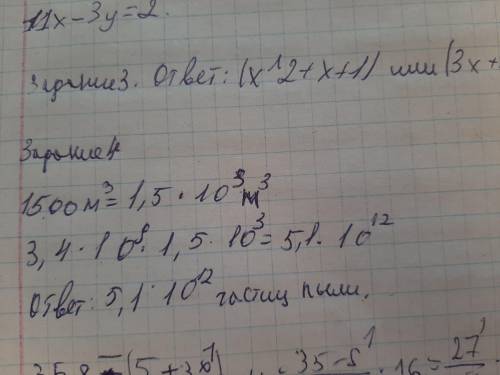 11x-3y=2.
Задание 3. Ответ: (x^2+x+1) или (3x+
Задание 4
1500 м³=1,5·10³ м³
3,4·10⁹·1,5·10³=5,1·10¹²
Ответ: 5,1·10¹² частиц пыли.